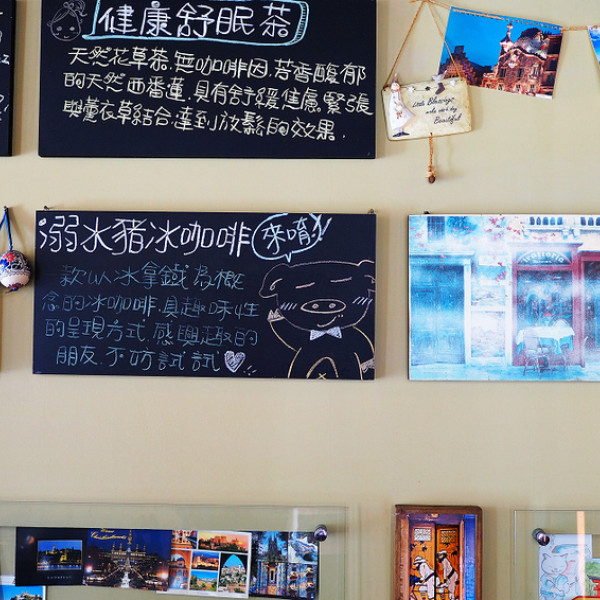 健康舒眠茶
天然花草茶.無咖啡因.芳香馥郁
的天然西番蓮.具有舒緩焦慮.緊張
與薰衣草結合.達到放鬆的效果.
Little Blessings
make each day
Beautiful
溺水豬冰咖啡 來唷!
一款以冰拿鐵為概
念的冰咖啡.具趣味性
的呈現方式.感興趣的
朋友.不妨試試
BUDAPEST